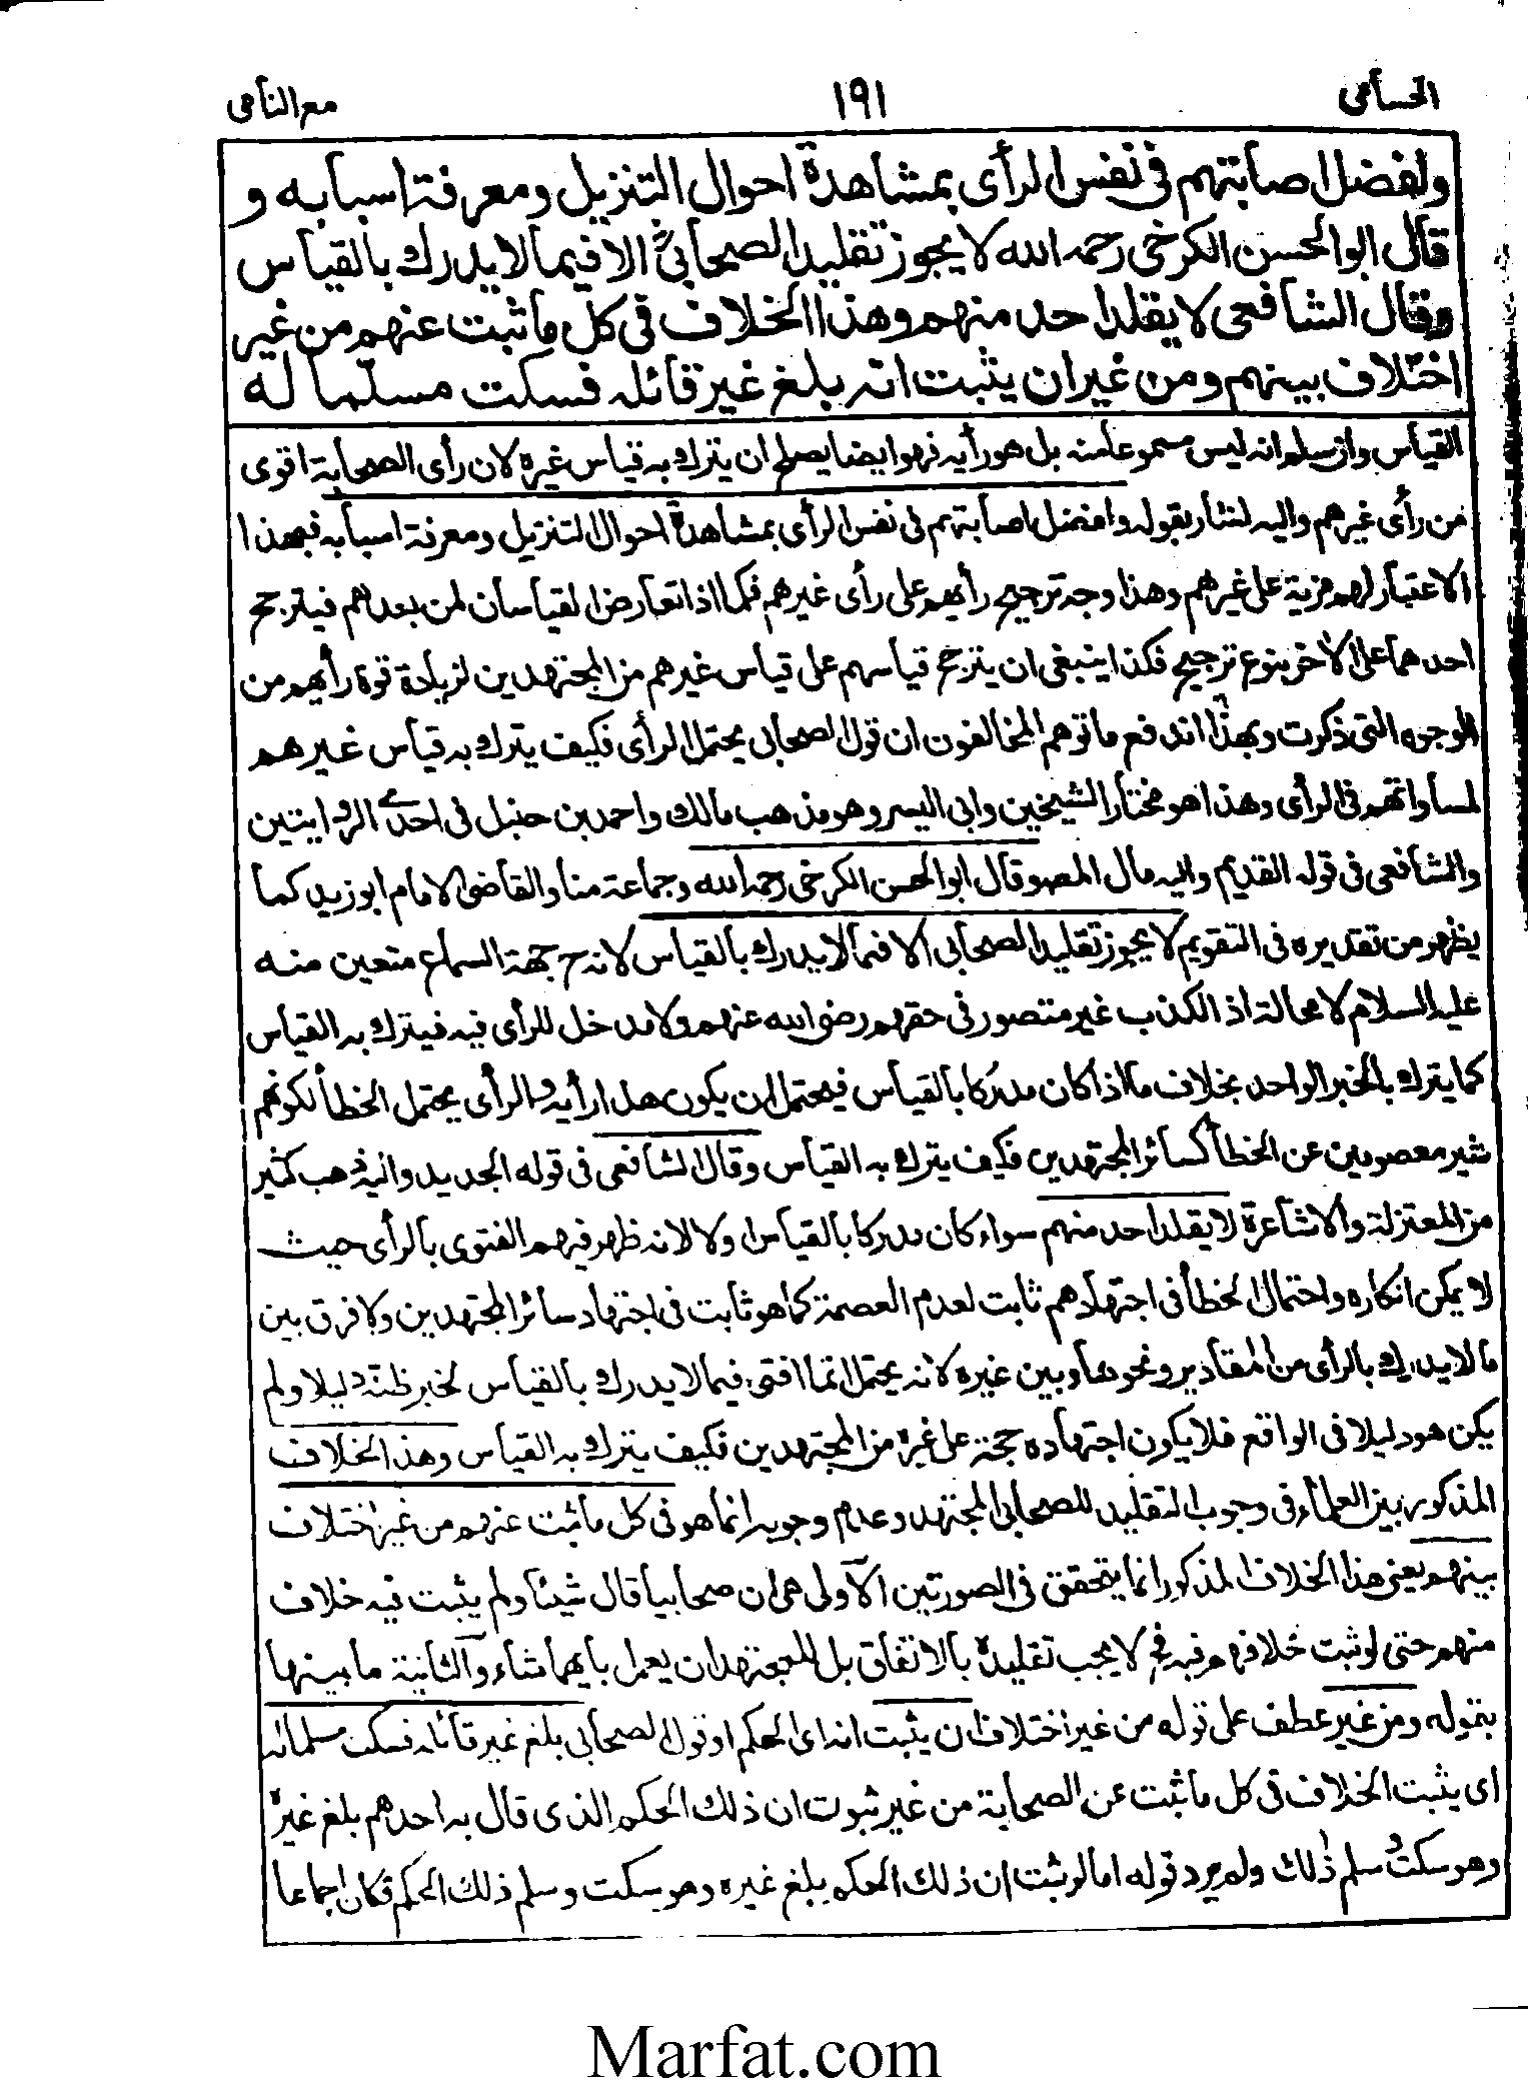 الحسامى
١٩١
مع النامى
ولفضل اصابتهم فى نفس الرأى بمشاهدة احوال التنزيل ومعرفة اسبابه و
قال ابوالحسن الكرخى رحمه الله لا يجوز تقليد الصحابىؓ الا فيما لا يدرك بالقياس
وقال الشافعى لا يقلد احد منهم وهذا الخلاف فى كل ما ثبت عنهم من غير
اختلاف بينهم ومن غير ان يثبت انه بلغ غير قائله فسكت مسلما له
القياس وان سلم انه ليس مسموعا منه بل هو رأيه فهو ايضا يصلح ان يترك به قياس غيره لان رأى الصحابة اقوى
من رأى غيرهم واليه اشار بقوله ولفضل اصابتهم فى نفس الرأى بمشاهدة احوال التنزيل ومعرفة اسبابه فبهذا
الاعتبار لهم مزية على غيرهم وهذا وجه ترجيح رأيهم على رأى غيرهم فكما اذا تعارض القياسان لمن بعدهم فيترجح
احدهما على الاخر بنوع ترجيح فكذا ينبغى ان يترجح قياسهم على قياس غيرهم من المجتهدين لزيادة قوة رأيهم من
الوجوه التى ذكرت وبهذا اندفع ما توهم المخالفون ان قول الصحابى يحتمل الرأى فكيف يترك به قياس غيرهم
لمساواتهم فى الرأى وهذا هو مختار الشيخين وابى اليسر وهو مذهب مالك واحمد بن حنبل فى احدى الروايتين
والشافعى فى قوله القديم واليه مال المصه وقال ابوالحسن الكرخى رحمه الله وجماعة منا والقاضى الامام ابوزيد كما
يظهر من تقديره فى التقويم لا يجوز تقليد الصحابى الا فيما لا يدرك بالقياس لانه ح جهة السماع متعين منه
عليه السلام لا محالة اذ الكذب غير متصور فى حقهم رضى الله عنهم ولا مدخل للرأى فيه فيترك به القياس
كما يترك بالخبر الواحد بخلاف ما اذا كان مدركا بالقياس فيحتمل ان يكون هذا رأيه والرأى يحتمل الخطأ لكونهم
غير معصومين عن الخطأ كسائر المجتهدين فكيف يترك به القياس وقال الشافعى فى قوله الجديد واليه ذهب كثير
من المعتزلة والاشاعرة لا يقلد احد منهم سواء كان مدركا بالقياس او لا لانه ظهر فيهم الفتوى بالرأى حيث
لا يمكن انكاره واحتمال الخطأ فى اجتهادهم ثابت لعدم العصمة كما هو ثابت فى اجتهاد سائر المجتهدين ولا فرق بين
ما لا يدرك بالرأى من المقادير ونحوها وبين غيره لانه يحتمل انما افتى فيما لا يدرك بالقياس لخبر ظنه دليلا ولم
يكن هو دليلا فى الواقع فلا يكون اجتهاده حجة على غيره من المجتهدين فكيف يترك به القياس وهذا الخلاف
المذكور بين العلماء فى وجوب التقليد للصحابى المجتهد وعدم وجوبه انما هو فى كل ما ثبت عنهم من غير اختلاف
بينهم يعنى هذا الخلاف المذكور انما يتحقق فى الصورتين الاولى هى ان صحابيا قال شيئا ولم يثبت فيه خلاف
منهم حتى لو ثبت خلافهم فيه فح لا يجب تقليده بالاتفاق بل للمجتهد ان يعمل بايهما شاء والثانية ما بينها
بقوله ومن غير عطف على قوله من غير اختلاف ان يثبت انه اى الحكم او قول الصحابى بلغ غير قائله فسكت مسلما له
اى يثبت الخلاف فى كل ما ثبت عن الصحابة من غير ثبوت ان ذلك الحكم الذى قال به احدهم بلغ غيره
وهو سكت وسلم ذلك ولم يرد قوله اما لو ثبت ان ذلك الحكم بلغ غيره وهو سكت وسلم ذلك الحكم فكان اجماعا
Marfat.com